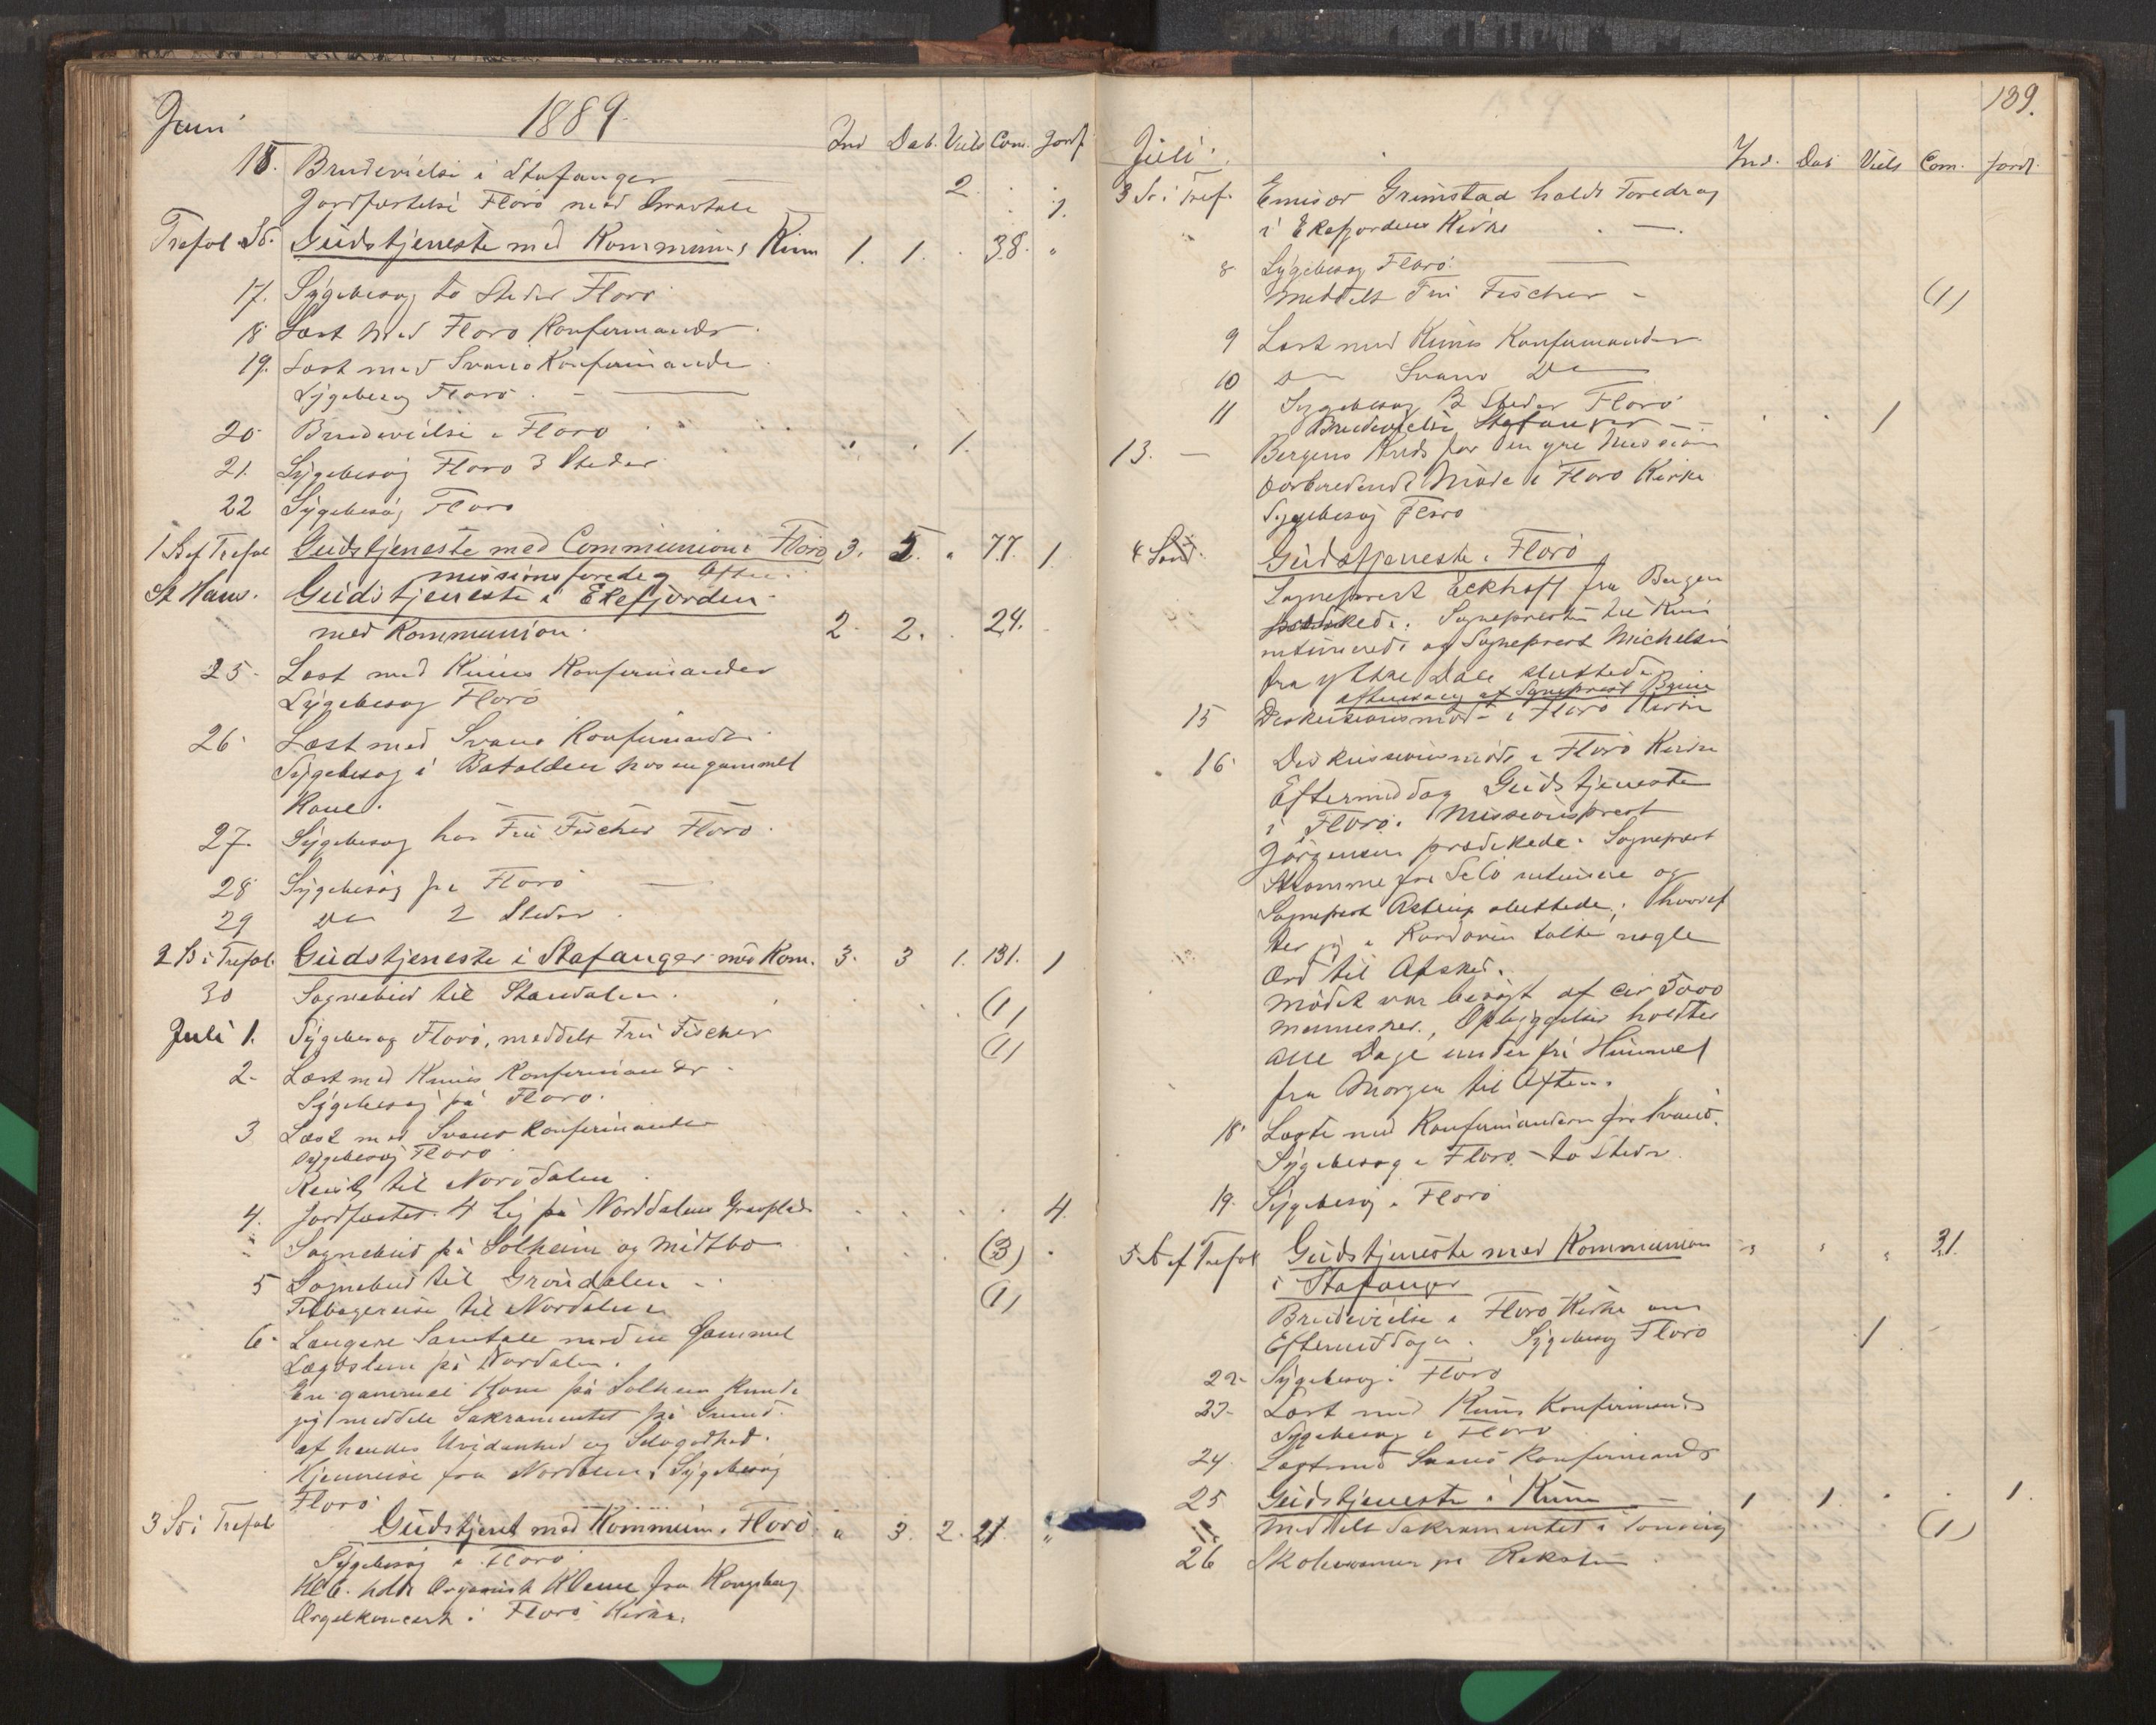 Juni 1889. Ind Dab. Viels Com. Jordf
15. Brudevielse i Stafanger 2.
Jordfæstelse Florö med Gravtale 1.
Trefol. Sö. Gudstjeneste med Kommunion, Kinn 1. 1. 38.
17. Sÿgebesøg to Steder Florö
18 Læst med Florö Konfirmander.
19. Læst med Svanö Konfirmander
Sÿgebesøg Florö.
20 Brudevielse i Florö 1.
21. Sÿgebesøg Florö 3 Steder
22 Sÿgebesøg Florö
1 S ef Trefol Gudstjeneste med Communion i Florö 3. 5. 77. 1
missionsforedrag Aften
St Hans. Gudstjeneste i Ekefjorden
med Kommunion. 2 2. 24.
25. Læst med Kinns Konfirmander
Sÿgebesøg Florö
26. Læst med Svanö Konfirmander
Sÿgebesøg i Batalden hos en gammel
Kone.
27. Sÿgebesøg hos Fru Fischer Florö.
28 Sÿgebesøg pa Florö
29 Do 2 Steder.
2 S i Trefol. Gudstjeneste i Stafanger med Kom. 3. 3 1. 131. 1
30 Sognebud til Standalen. (1)
Juli 1. Sÿgebesøg Florö, meddelt Fru Fischer (1)
2. Læst med Kinns Konfirmander
Sÿgebesøg på Florö.
3 Læst med Svanö Konfirmander
Sÿgebesøg Florö
Reist til Norddalen
4. Jordfæstet 4 Lig på Norddalens Gravplads 4.
Sognebud på Solheim og Midtbö (3)
5 Sognebud til Gröndalen (1)
Tilbagereise til Nordalen
6. Længere Samtale med en Gammel
Lægdslem på Nordalen.
En gammel Kone på Solheim kunde
jeg meddele Sakramentet på Grund
af hendes Uvidenhed og Selvgodhed.
Hjemreise fra Nordalen, Sÿgebesøg
Florö
3 Sö i Trefol Gudstjenst med Kommunion i Florö 3. 2. 21.
Sÿgebesøg i Florö
Kl 6. holdt Organist Klenne fra Kongsberg
Orgelkoncert i Florö Kirke.
139.
Juli. Ind. Dab Viels Com. Jordf.
3 Sö i Tref. Emisær Grimstad holdt Foredrag
i Ekefjordens Kirke
8 Sÿgebesøg Florö.
meddelt Fru Fischer (1)
9 Læst med Kinns Konfirmander
10 Do Svanö Do
11 Sygebesøg 2 Steder Florö
Brudevielse Stafanger 1
13. Bergens Kreds for den ydre Mission
forberedende Møde i Florö Kirke
Sygebesøg Florö
4 Sönd. Gudstjeneste i Florö
Sogneprest Eckhoff fra Bergen
prædikede. Sognepresten til Kinn
messede og Sogneprest Michelsen
fra Ytre Dale sluttede
aftensang af Sogneprest Bruun
15 Diskussionsmøde i Florö Kirke
16. Diskussionsmøde i Florö Kirke
Eftermiddag Gudstjeneste
i Florö. Missionsprest
Jörgensen prædikede. Sogneprest
Stromme fra Selö og
Sogneprest Astrup sluttede, hvoref
ter jeg i Kordören talte nogle
Ord til Afsked.
Mödet var besögt af cir 5000
mennesker, Opbyggelser holdtes
alle Dage under fri Himmel
fra Morgen til Aften.
18. Læste med Konfirmanderne fra Svanö.
Sÿgebesøg i Florö to Steder
19. Sÿgebesøg i Florö
5 S ef Trefol Gudstjeneste med Kommunion 31.
i Stafanger
Brudevielse i Florö Kirke om
Eftermiddagen. Sÿgebesøg Florö 1
22. Sÿgebesøg i Florö
23. Læst med Kinns Konfirmander
Sÿgebesøg i Florö
24. Læst med Svanö Konfirmander
25 Gudstjeneste i Kinn 1 1. 1.
Meddelt Sakramentet i (1)
26 Skoleexamen pa Reksten